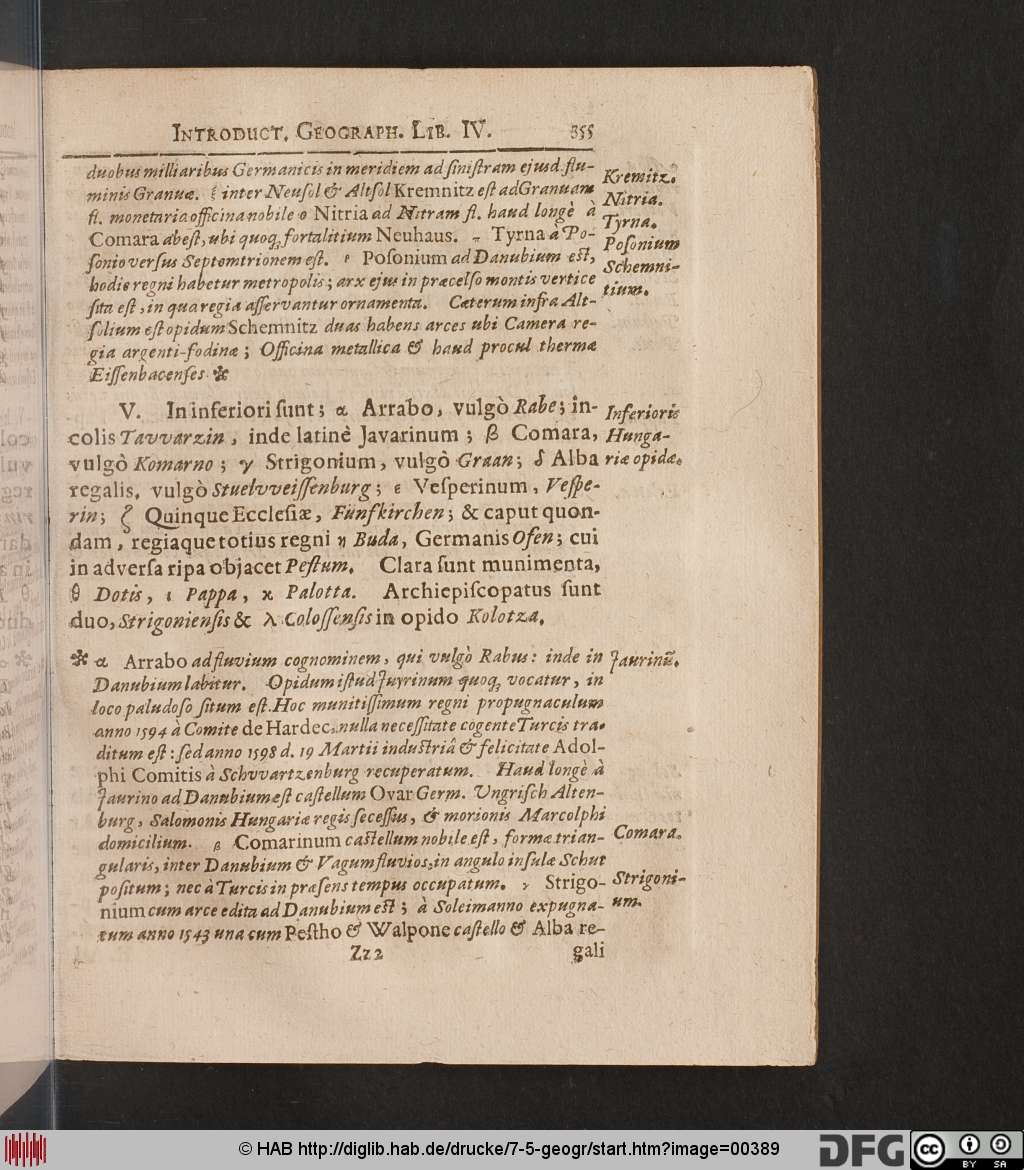 INTRODUCT. GEOGRAPH. LIB. IV. 355
duobus milliaribus Germanicis in meridiem ad ſiniſtram ejusd. flu-
minis Granuæ. ξ inter Neuſol & Altſol Kremnitz eſt ad Granuam
fl. monetaria officina nobile ο Nitria ad Nitram fl. haud longè à
Comara abeſt, ubi quoq; fortalitium Neuhaus. π Tyrna à Po-
ſonio verſus Septemtrionem eſt. ρ Poſonium ad Danubium eſt,
hodie regni habetur metropolis; arx ejus in præcelſo montis vertice
ſita eſt, in qua regia aſſervantur ornamenta. Cæterum infra Alt-
ſolium eſt opidum Schemnitz duas habens arces ubi Camera re-
gia argenti-fodinæ; Officina metallica & haud procul thermæ
Eiſſenbacenſes ✲
Kremitz.
Nitria.
Tyrna.
Poſonium
Schemni-
tium.
V. In inferiori ſunt; α Arrabo, vulgò Rabe; in-
colis Tavvarzin, inde latinè Javarinum; β Comara,
vulgò Komarno; γ Strigonium, vulgò Graan; δ Alba
regalis, vulgò Stuelvveiſſenburg; ε Veſperinum, Veſpe-
rin; ζ Quinque Eccleſiæ, Fünfkirchen; & caput quon-
dam, regiaque totius regni η Buda, Germanis Ofen; cui
in adverſa ripa objacet Peſtum. Clara ſunt munimenta,
θ Dotis, ι Pappa, κ Palotta. Archiepiſcopatus ſunt
duo, Strigonienſis & λ Coloſſenſis in opido Kolotza.
Inferioris
Hunga-
riæ opidæ.
✲ α Arrabo ad fluvium cognominem, qui vulgò Rabus: inde in
Danubium labitur. Opidum iſtud Juyrinum quoq; vocatur, in
loco paludoſo ſitum eſt. Hoc munitiſſimum regni propugnaculum
anno 1594 à Comite de Hardec, nulla neceſſitate cogente Turcis tra-
ditum eſt: ſed anno 1598 d. 19 Martii induſtriâ & felicitate Adol-
phi Comitis à Schvvartzenburg recuperatum. Haud longè à
Jaurino ad Danubium eſt caſtellum Ovar Germ. Ungriſch Alten-
burg, Salomonis Hungariæ regis ſeceſſus, & morionis Marcolphi
domicilium. β Comarinum caſtellum nobile eſt, formæ trian-
gularis, inter Danubium & Vagum fluvios, in angulo inſulæ Schut
poſitum; nec à Turcis in præſens tempus occupatum. γ Strigo-
nium cum arce edita ad Danubium eſt; à Soleimanno expugna-
tum anno 1543 una cum Peſtho & Walpone caſtello & Alba re-
Jaurinũ.
Comara.
Strigoni-
um.
Zz 2 gali
© HAB http://diglib.hab.de/drucke/7-5-geogr/start.htm?image=00389
DFG
cc
BY SA